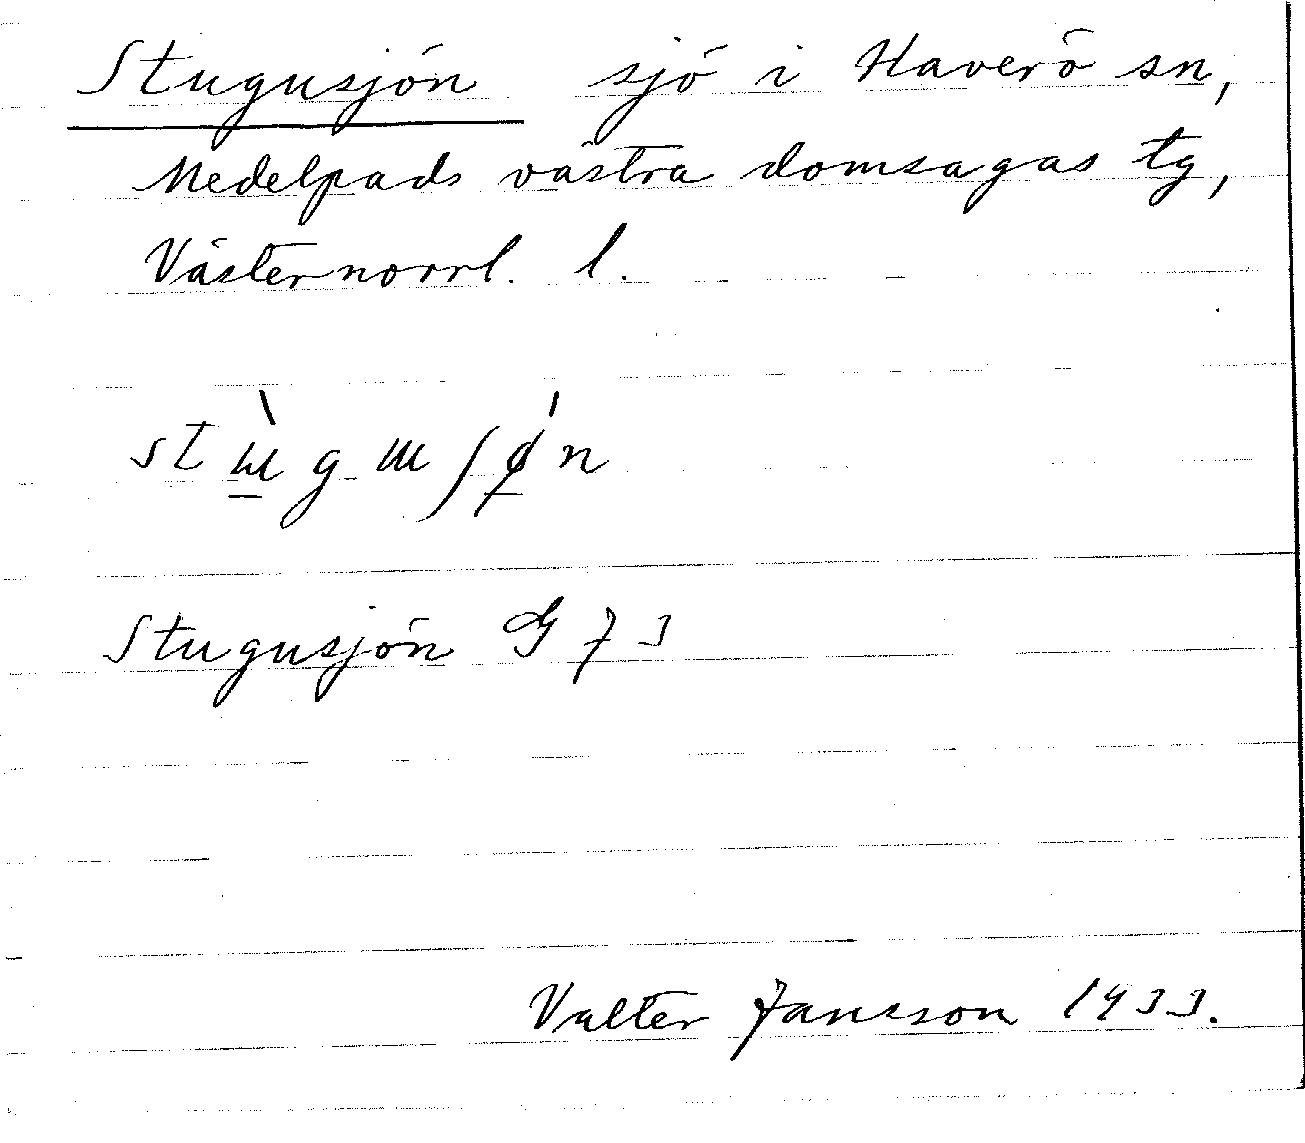 Stugusjön sjö i Haverö sn,
Medelpads västra domsagas tg,
Västernorrl. l.
stɯ̀gɯʃǿn
Stugusjön G 73
Valter Jansson 1933.